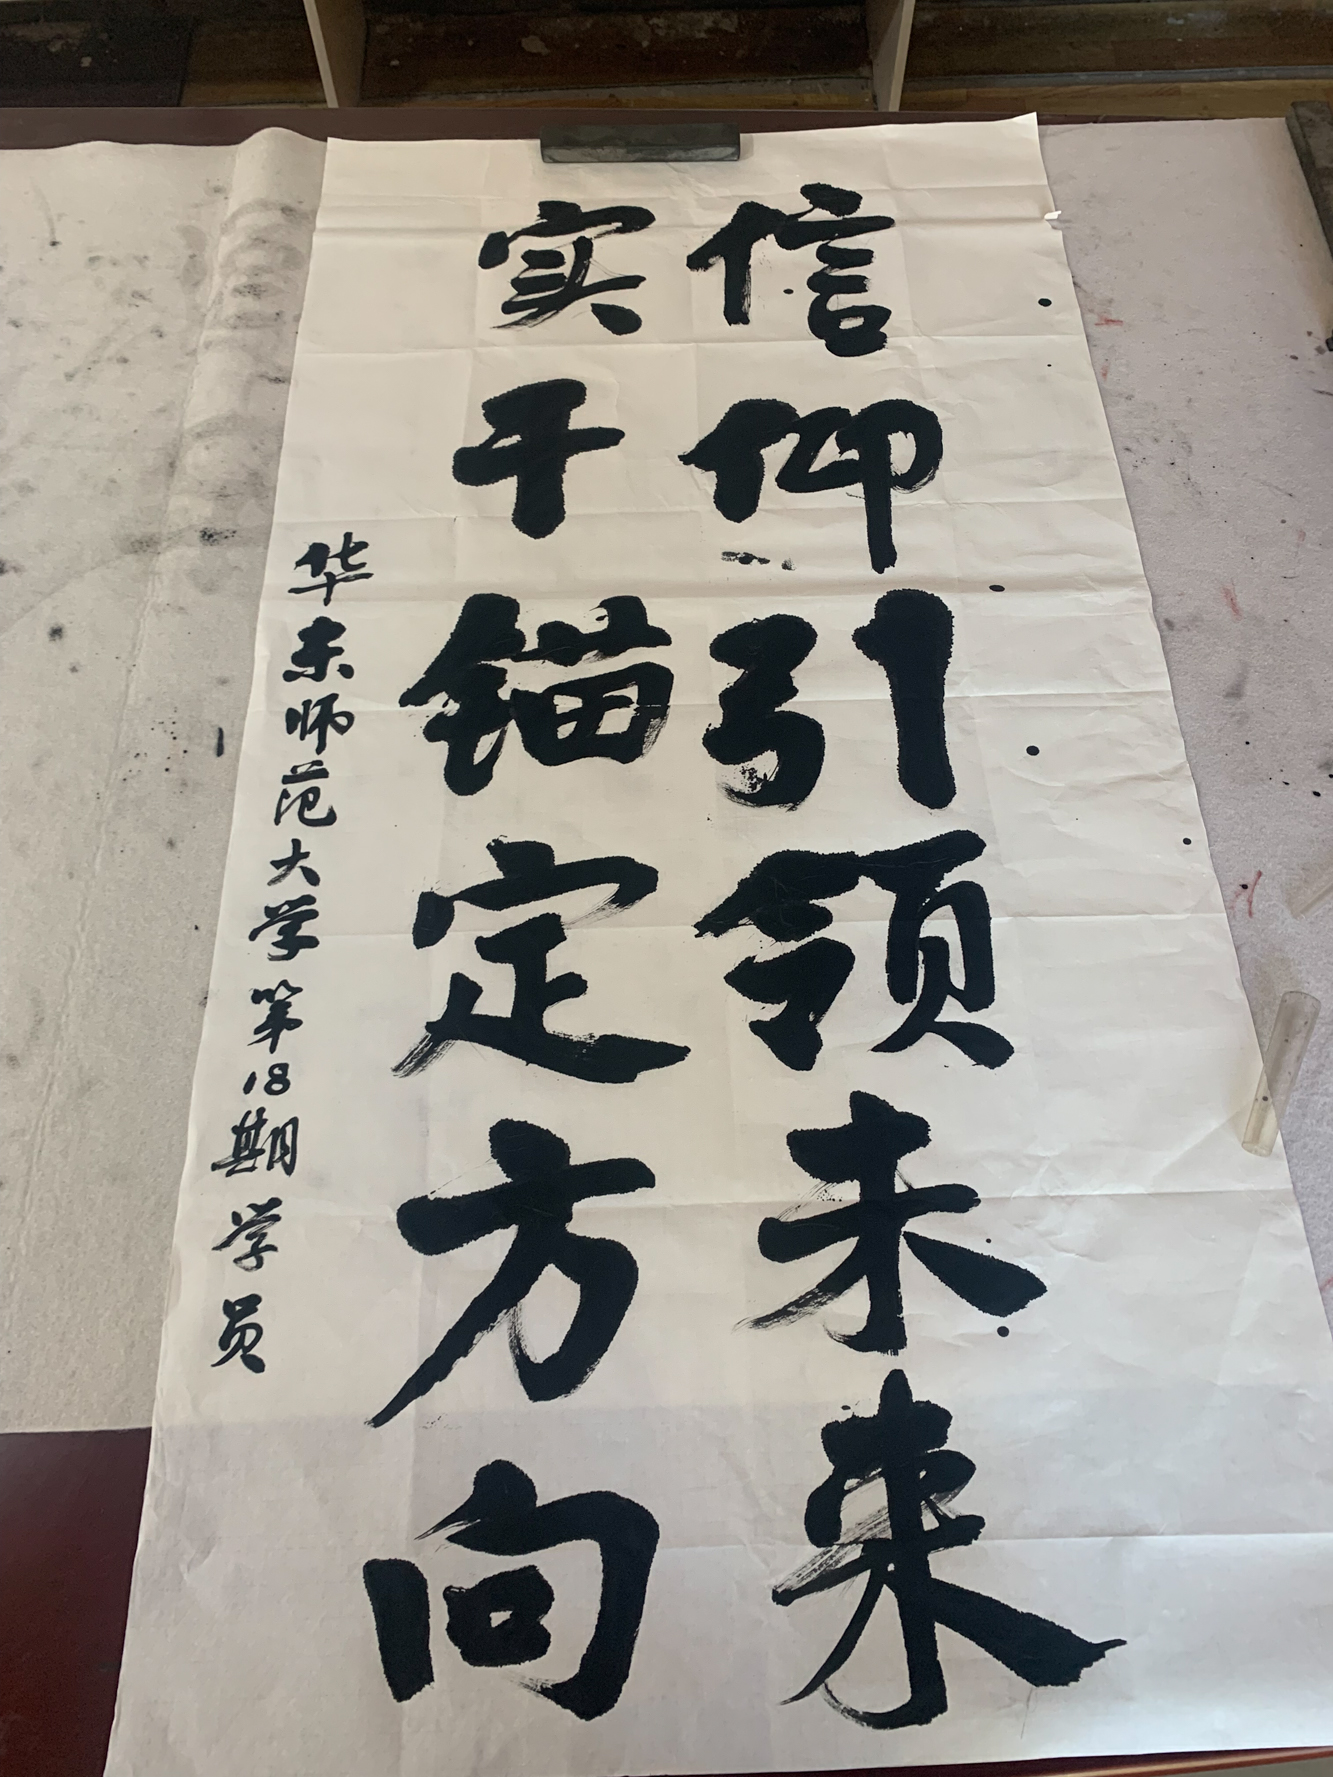 信仰引领未来
实干锚定方向
华东师范大学第18期学员